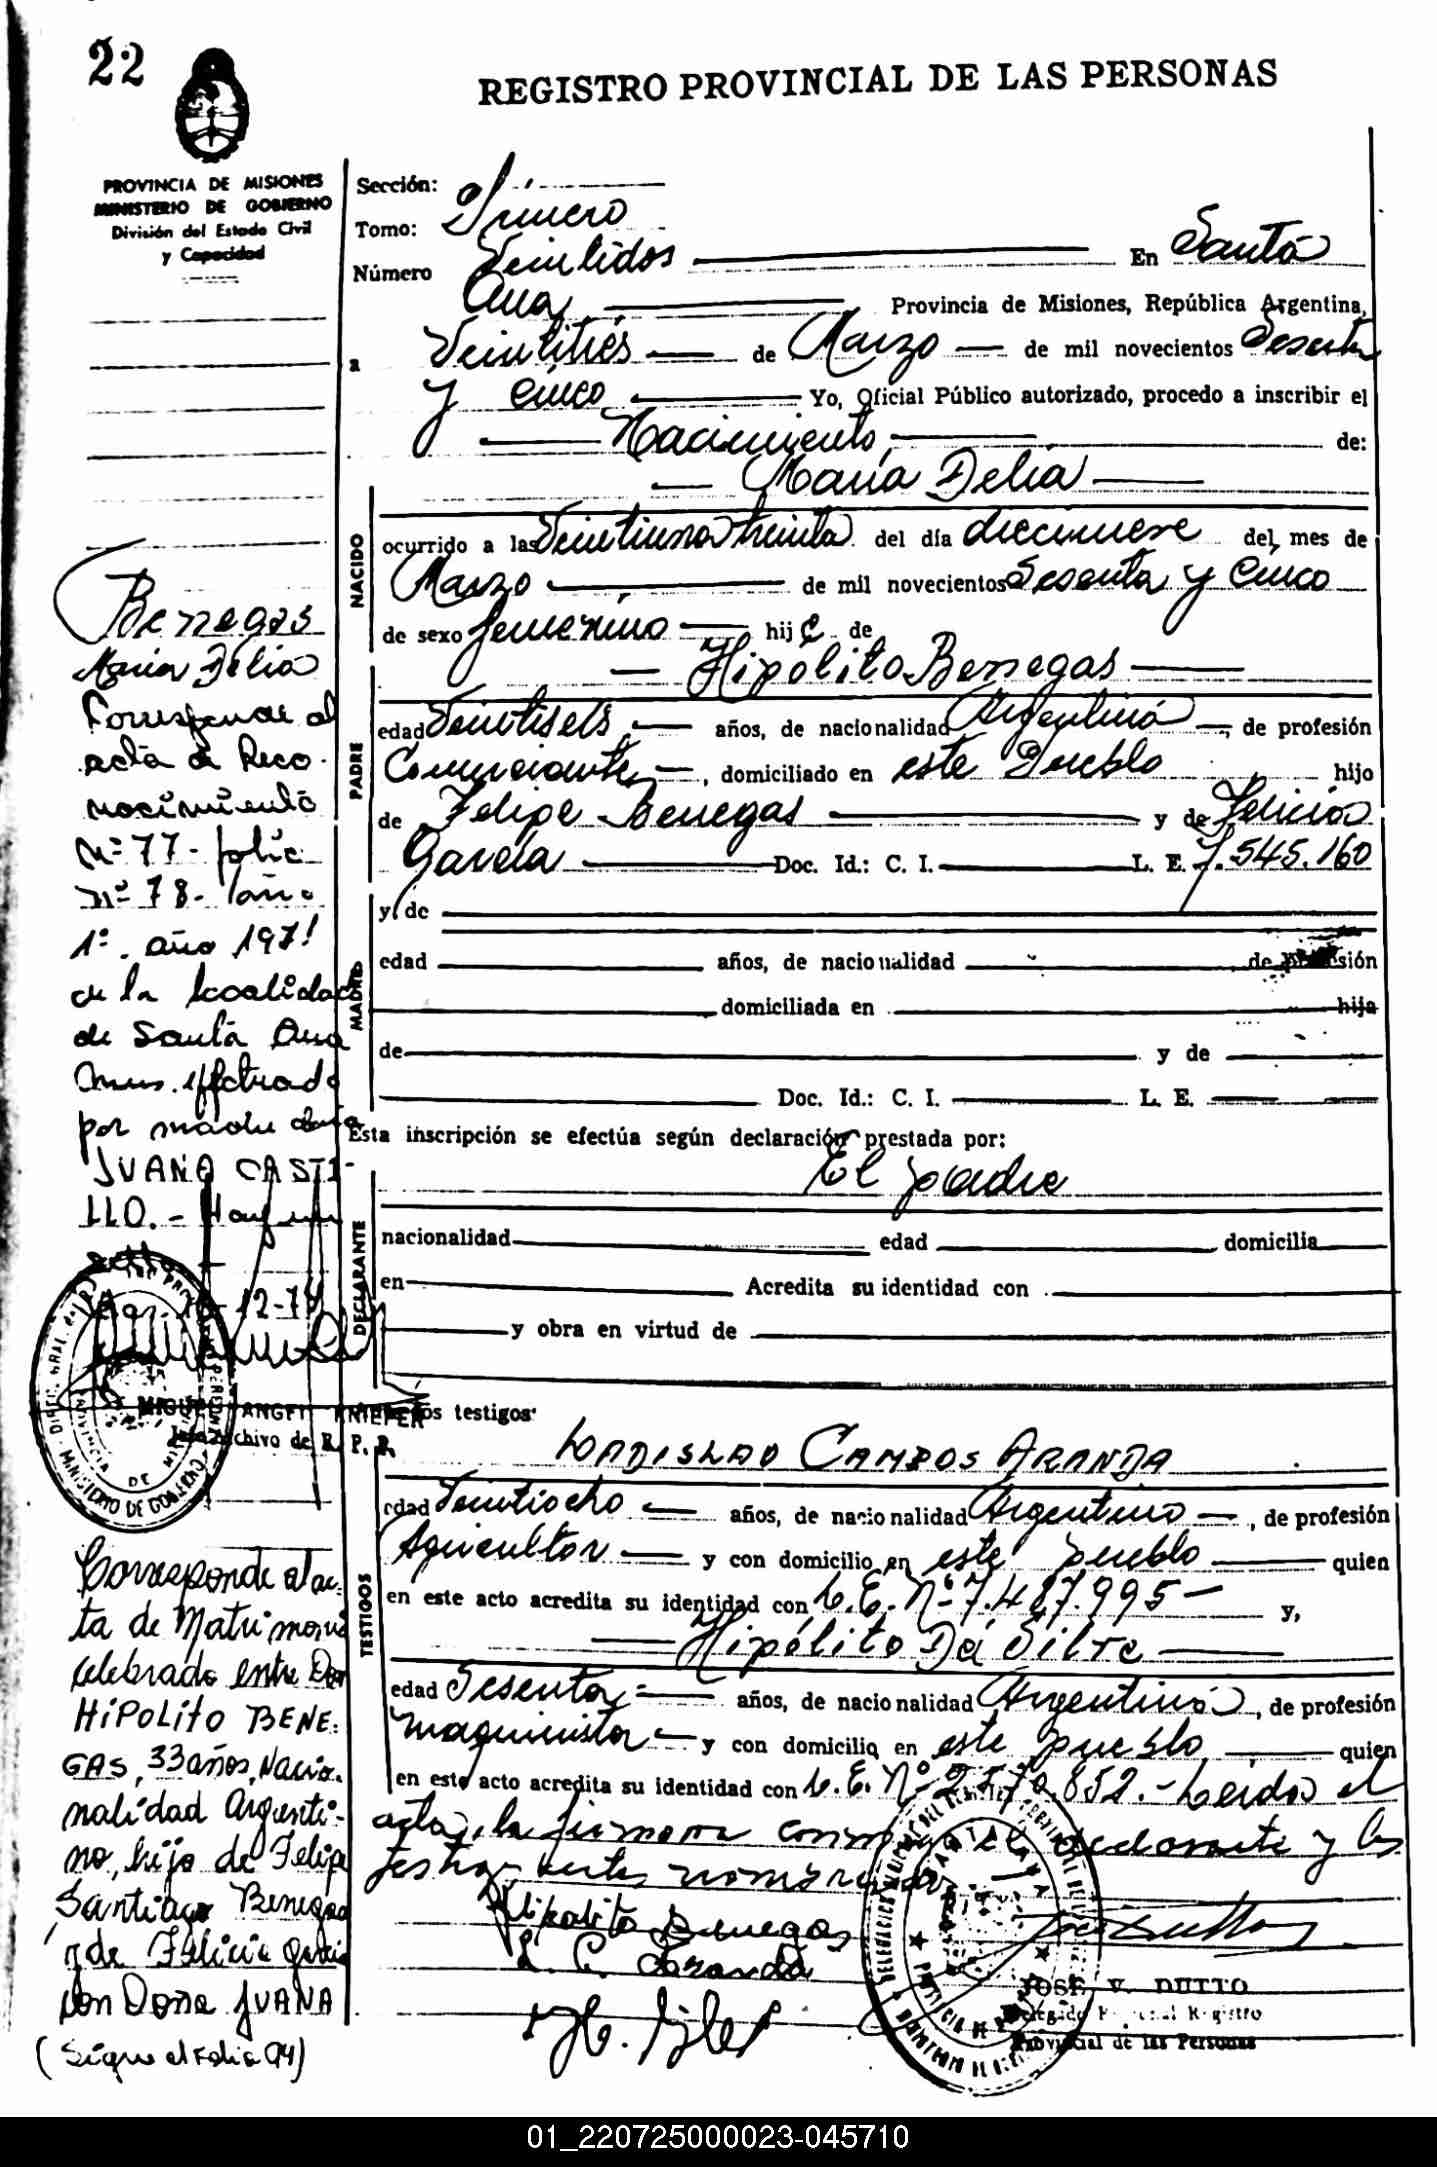 22
REGISTRO PROVINCIAL DE LAS PERSONAS
PROVINCIA DE MISIONES
MINISTERIO DE GOBIERNO
División del Estado Civil
y Capacidad
Sección:
Tomo: Primero
Número Veintidos En Santa
Ana Provincia de Misiones, República Argentina,
a Veintitres de Marzo de mil novecientos Sesenta
y Cinco Yo, Oficial Público autorizado, procedo a inscribir el
Nacimiento de:
María Delia
NACIDO
ocurrido a las Veintiuna treinta del día diecinueve del mes de
Marzo de mil novecientos Sesenta y Cinco
de sexo femenino hij a de
Hipólito Benegas
PADRE
edad Veintiseis años, de nacionalidad Argentina, de profesión
Comerciante, domiciliado en este Pueblo hijo
de Felipe Benegas y de Felicia
García Doc. Id.: C. I. L. E. 7.545.160
y de
MADRE
edad años, de nacionalidad de profesión
domiciliada en hija
de y de
Doc. Id.: C. I. L. E.
Esta inscripción se efectúa según declaración prestada por:
El padre
DECLARANTE
nacionalidad edad domicilia
en Acredita su identidad con
y obra en virtud de
los testigos
LADISLAO CAMPOS ARANDA
TESTIGOS
edad Veintiocho años, de nacionalidad Argentino, de profesión
Agricultor y con domicilio en este pueblo quien
en este acto acredita su identidad con L.E. Nº 7.487.995 y,
Hipólito Da Silva
edad Sesenta años, de nacionalidad Argentina, de profesión
maquinista y con domicilio en este pueblo quien
en este acto acredita su identidad con L.E. Nº 852.- Leida el
acta, la firman conmigo el declarante y los
testigos antes nombrados.
Hipolito Benegas
L. C. Aranda
JOSE V. DUTTO
Delegado Registro
Provincial de las Personas
Benegas
María Delia
Corresponde al
acta de Reco-
nocimiento
Nº 77 - folio
Nº 78 - Tomo
1º. año 1971
de la localidad
de Santa Ana
Mnes. efectuado
por madre doña
JUANA CASTI-
LLO.-
12-74
MIGUEL ANGEL KNIEFER
Jefe Archivo de R. P. P.
Corresponde al ac-
ta de Matrimonio
celebrado entre Don
HIPOLITO BENE-
GAS, 33 años, Nacio-
nalidad Argenti-
no, hijo de Felipe
Santiago Benegas
y de Felicia García
con Doña JUANA
(Sigue el Folio 94)
01_220725000023-045710